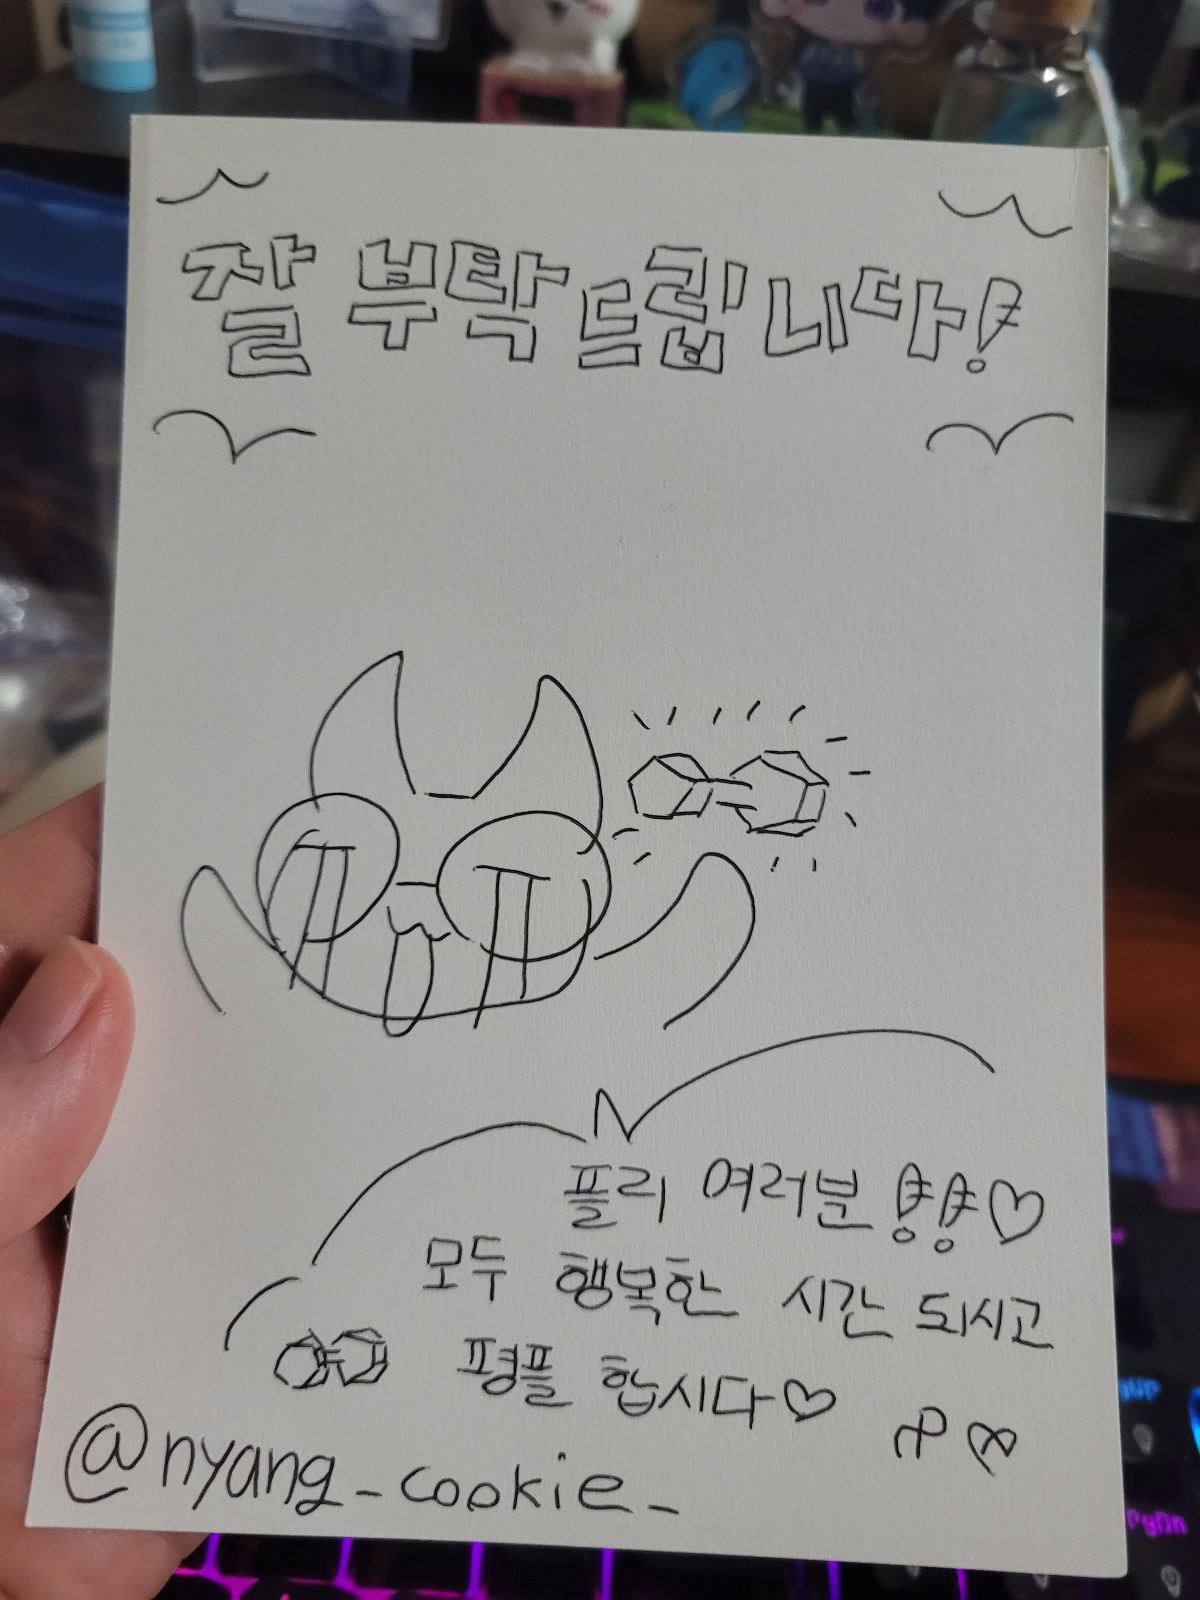 잘 부탁드립니다!
플리 여러분 뿅뿅♡
모두 행복한 시간 되시고
평플 합시다♡
@nyang_cookie_